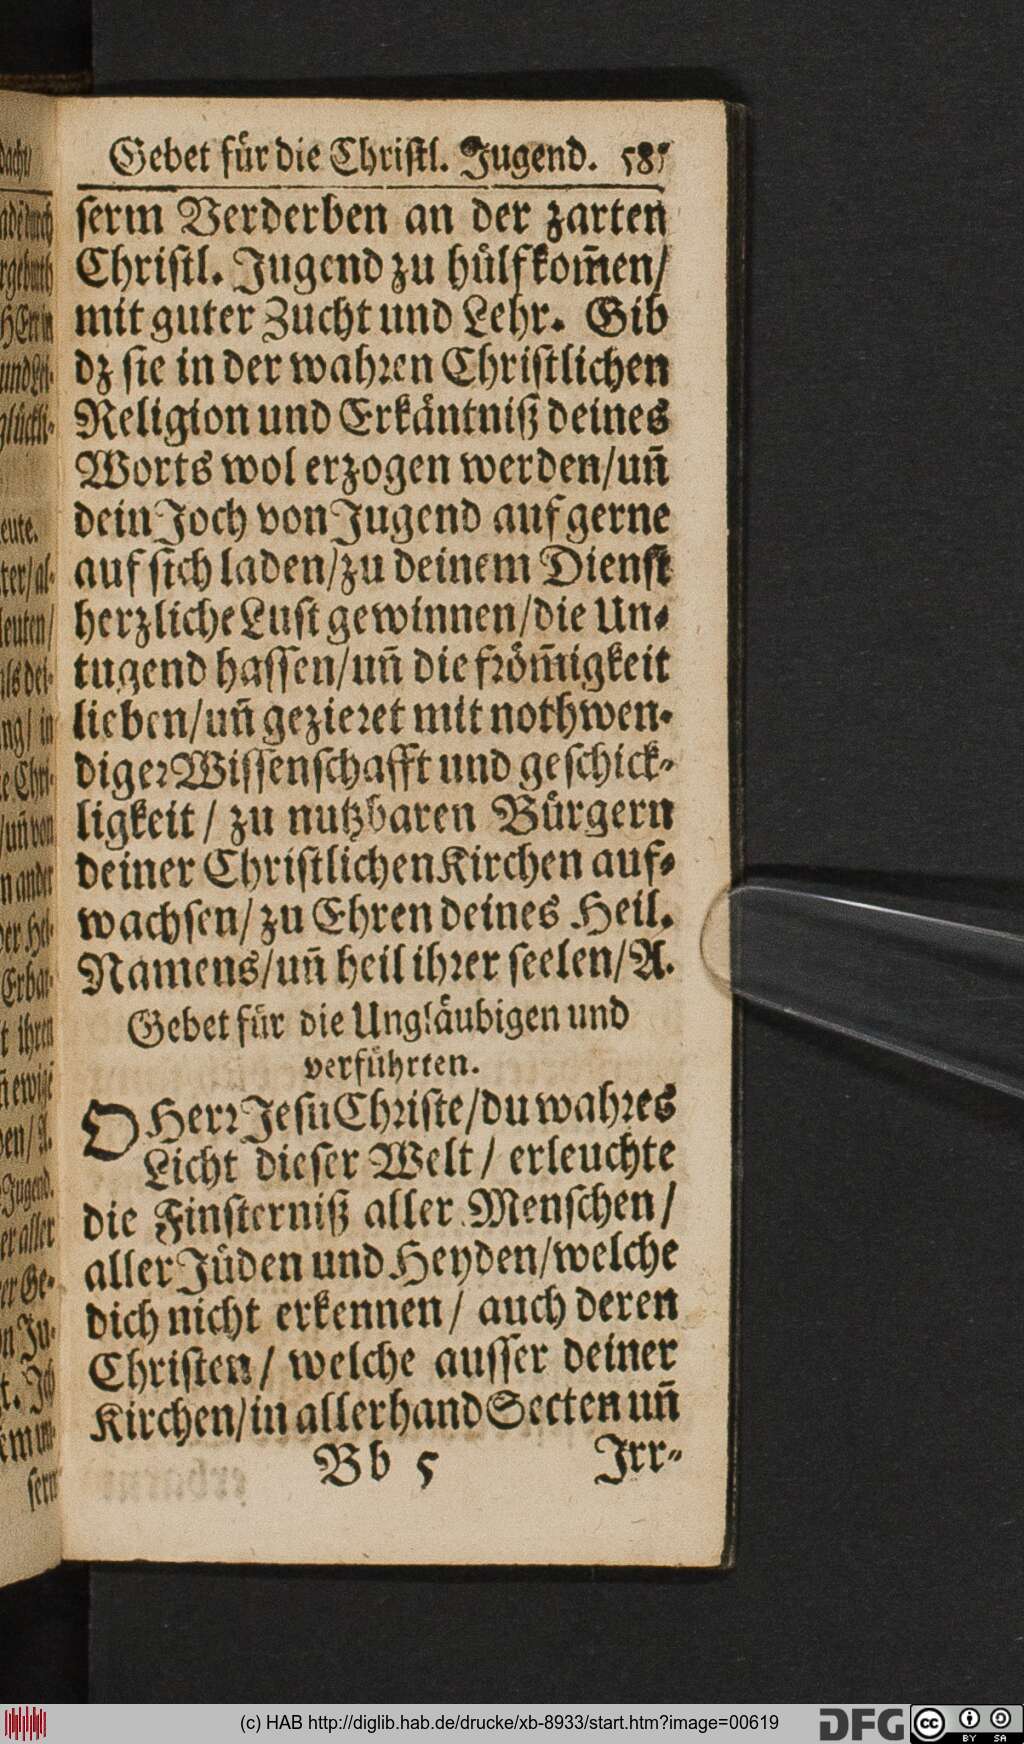 Gebet für die Christl. Jugend. 585
serm Verderben an der zarten
Christl. Jugend zu hülf kom̃en/
mit guter Zucht und Lehr. Gib
dz sie in der wahren Christlichen
Religion und Erkäntniß deines
Worts wol erzogen werden/uñ
dein Joch von Jugend auf gerne
auf sich laden/zu deinem Dienst
herzliche Lust gewinnen/die Un-
tugend hassen/uñ die fröm̃igkeit
lieben/uñ gezieret mit nothwen-
diger Wissenschafft und geschick-
ligkeit / zu nutzbaren Bürgern
deiner Christlichen Kirchen auf-
wachsen/ zu Ehren deines Heil.
Namens/uñ heil ihrer seelen/A.
Gebet für die Ungläubigen und
verführten.
O Herr Jesu Christe/du wahres
Licht dieser Welt / erleuchte
die Finsterniß aller Menschen /
aller Jüden und Heyden/welche
dich nicht erkennen / auch deren
Christen / welche ausser deiner
Kirchen/in allerhand Secten uñ
Bb 5 Irr-
(c) HAB http://diglib.hab.de/drucke/xb-8933/start.htm?image=00619
DFG
cc BY SA